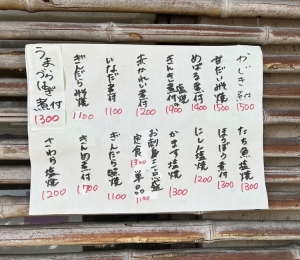 かじき煮付 1500
甘だい味噌焼 1500
めばる煮付 1400
きんき 塩焼 煮付 1900
赤かれい煮付 1200
いなだ煮付 1100
ぎんだら味噌焼 1100
うまづらはぎ煮付 1300
たち魚塩焼 1300
ほうぼう煮付 1300
にしん塩焼 1200
かます塩焼 1300
お刺身三点盛
定食 1300 単品 1100
ぎんだら塩焼 1100
きんめ煮付 1700
さわら塩焼 1200